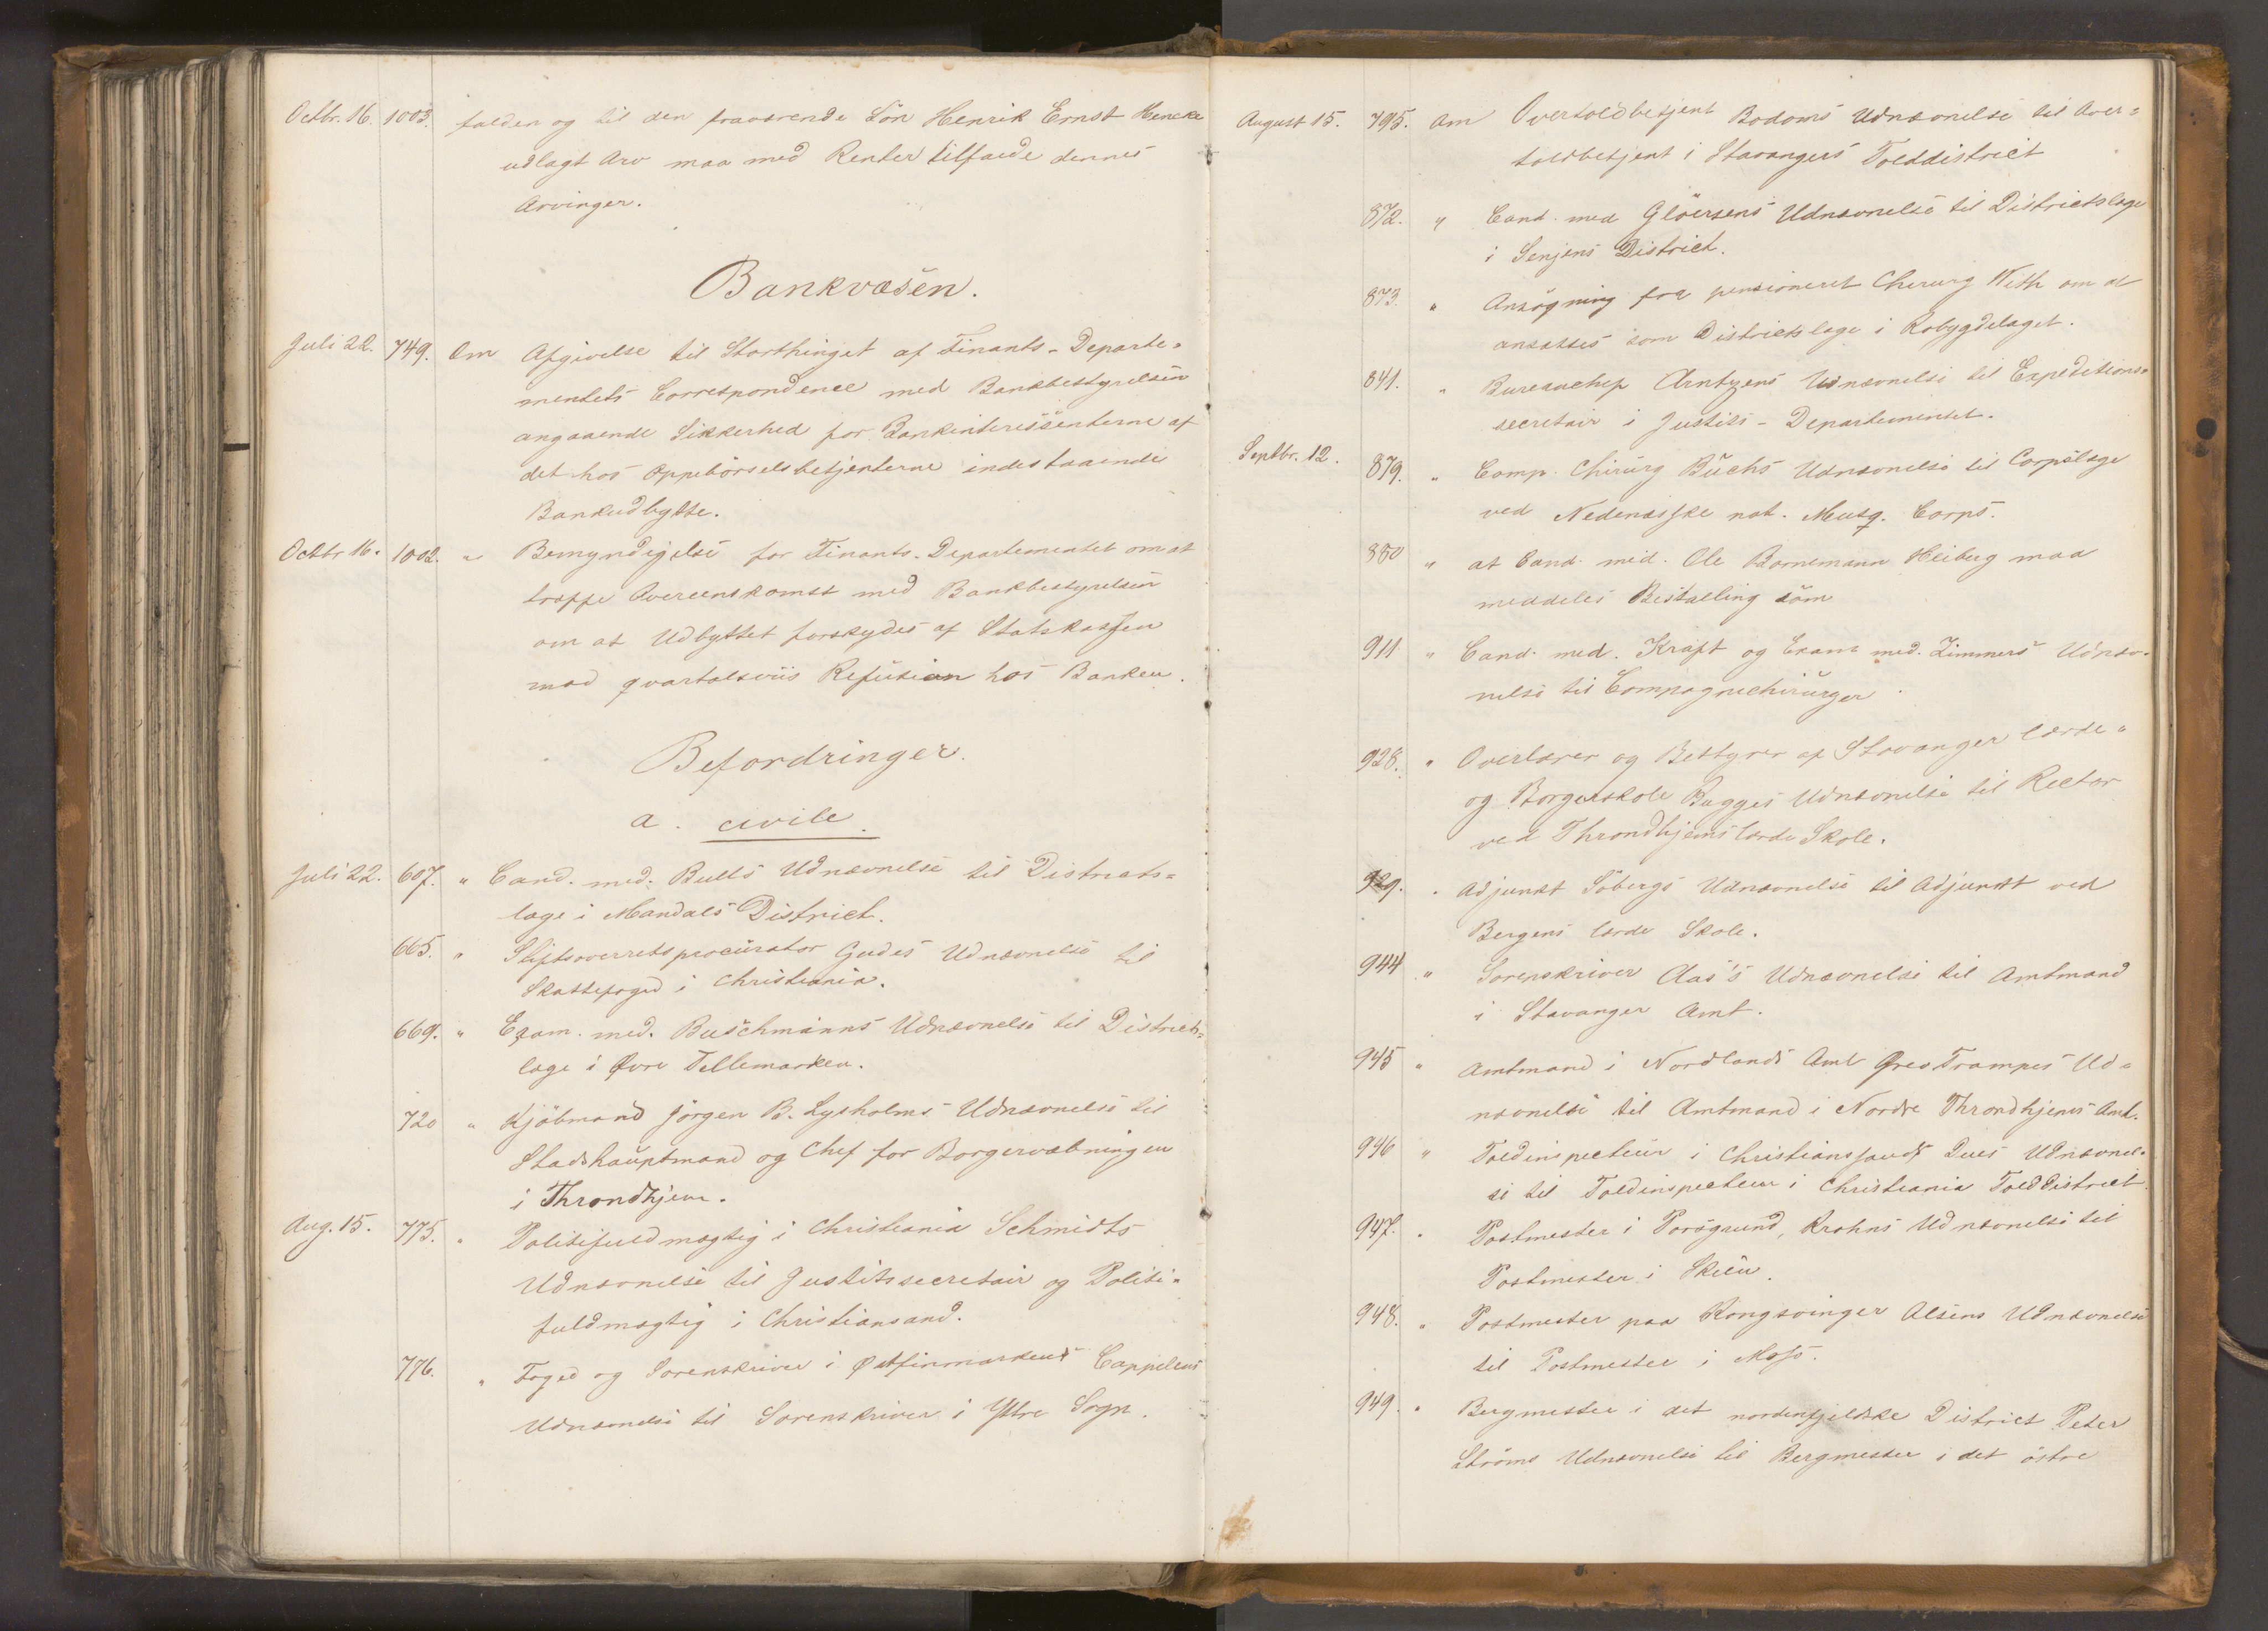 Octbr. 16. 1003. falden og til den fraværende Sön Henrik Ernst Hencke
udlagt Arv maa med Renter tilfalde dennes
Arvinger.
Bankvæsen.
Juli 22. 749. Om Afgivelse til Storthinget af Finants-Departe-
mentets Correspondence med Bankbestyrelsen
angaaende Sikkerhed for Bankinteressenterne af
det hos Oppebörselsbetjenterne indestaaende
Bankudbytte.
Octbr 16. 1002. " Bemyndigelse for Finants-Departementet om at
træffe Overeenskomst med Bankbestyrelsen
om at Udbyttet forskydes af Statskassen
mod qvartalsviis Refusion hos Banken.
Befordringer.
a. civile.
Juli 22. 607. " Cand. med. Bulls Udnævnelse til Districts-
læge i Mandals District.
665. " Stiftsoverretsprocurator Gudes Udnævnelse til
Skattefoged i Christiania.
669. " Exam. med. Buschmanns Udnævnelse til Districts-
læge i Øvre Tellemarken.
720 " Kjöbmand Jörgen B. Lysholms Udnævnelse til
Stadshauptmand og Chef for Borgervæbningen
i Throndhjem.
Aug. 15. 775. " Politifuldmægtig i Christiania Schmidts
Udnævnelse til Justitssecretair og Politi-
fuldmægtig i Christiansand.
776. " Foged og Sorenskriver i Østfinmarkens Cappelens
Udnævnelse til Sorenskriver i Yttre Sogn.
August 15. 795. Om Overtoldbetjent Bodoms Udnævnelse til Over-
toldbetjent i Stavangers Tolddistrict
872. " Cand. med Glöersens Udnævnelse til Districtslæge
i Senjens District.
873. " Ansögning fra pensioneret Chirurg With om at
ansættes som Districtslæge i Robygdelaget.
841. " Bureauchef Arntzens Udnævnelse til Expeditions-
secretair i Justits-Departementet.
Septbr. 12. 879. " Comp. Chirurg Buchs Udnævnelse til Corpslæge
ved Nedenæsske nat. Musq. Corps.
880 " at Cand. med. Ole Bornemann Heiberg maa
meddeles Bestalling som
911 " Cand. med. Kraft og Exam. med. Zimmers Udnæv-
nelse til Compagniechirurger.
928. " Overlærer og Bestyrer af Stavanger lærde-
og Borgerskole Bugges Udnævnelse til Rector
ved Throndhjems lærde Skole.
929. " Adjunct Söbergs Udnævnelse til Adjunct ved
Bergens lærde Skole.
944 " Sorenskriver Aas's Udnævnelse til Amtmand
i Stavanger Amt.
945 " Amtmand i Nordlands Amt Grev Trampes Ud-
nævnelse til Amtmand i Nordre Throndhjems Amt.
946 " Toldinspecteur i Christianssands Dues Udnævnel-
se til Toldinspecteur i Christiania Tolddistrict.
947. " Postmester i Porsgrund, Krohns Udnævnelse til
Postmester i Skien.
948. " Postmester paa Kongsvinger Alsens Udnævnelse
til Postmester i Moss.
949. " Bergmester i det nordenfjeldske District Peter
Ströms Udnævnelse til Bergmester i det östre